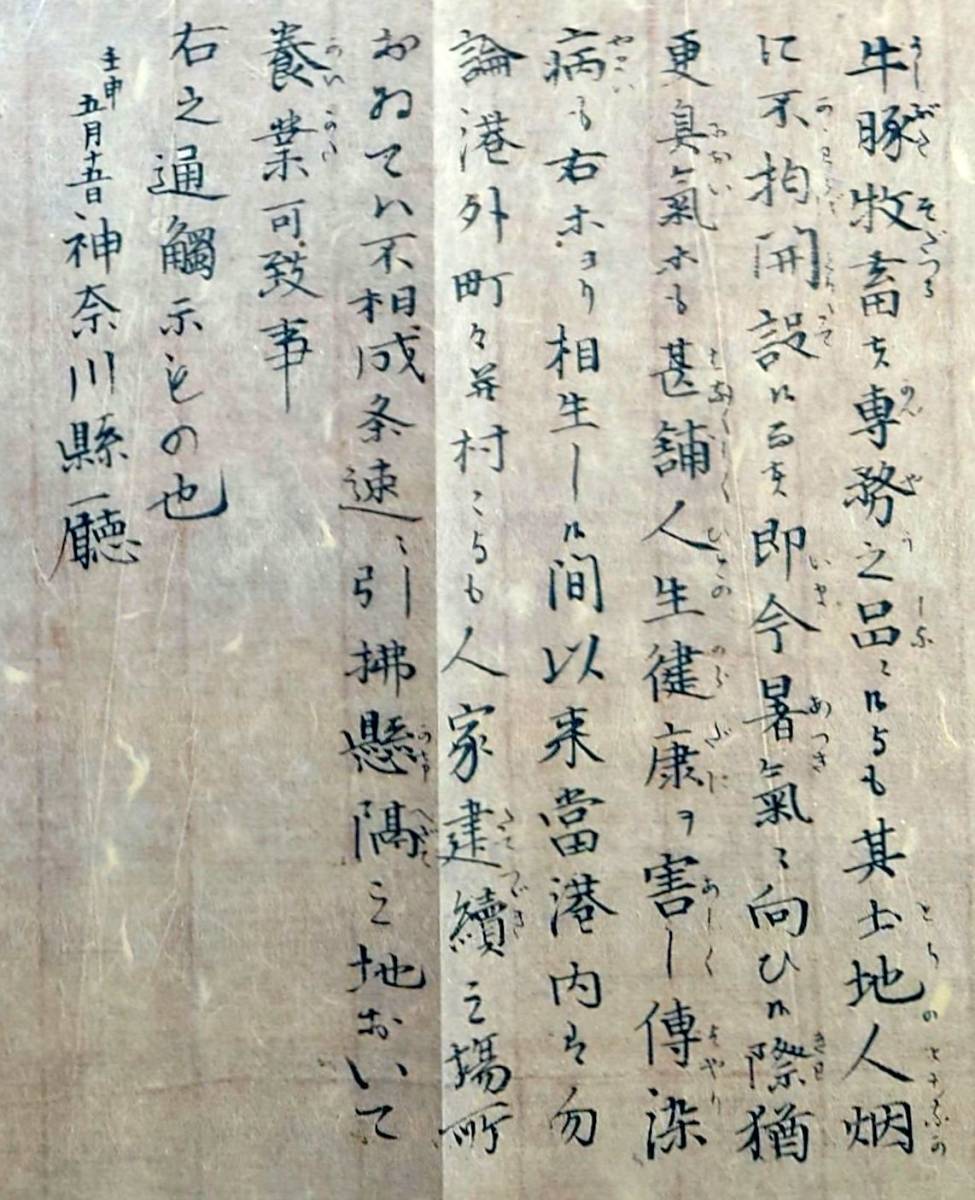 牛豚牧畜者専務之品ニ候得共其土地人烟
に不拘開設候而者即今暑氣ニ向ひ候際猶
更臭氣等も甚舗人生健康ヲ害し傳染
病も右等ヨリ相生し候間以来當港内者勿
論港外町々并村ニ而も人家建續之場所
おゐてハ不相成条速ニ引拂懸隔之地おいて
養業可致事
右之通觸示もの也
壬申五月十五日神奈川縣廳